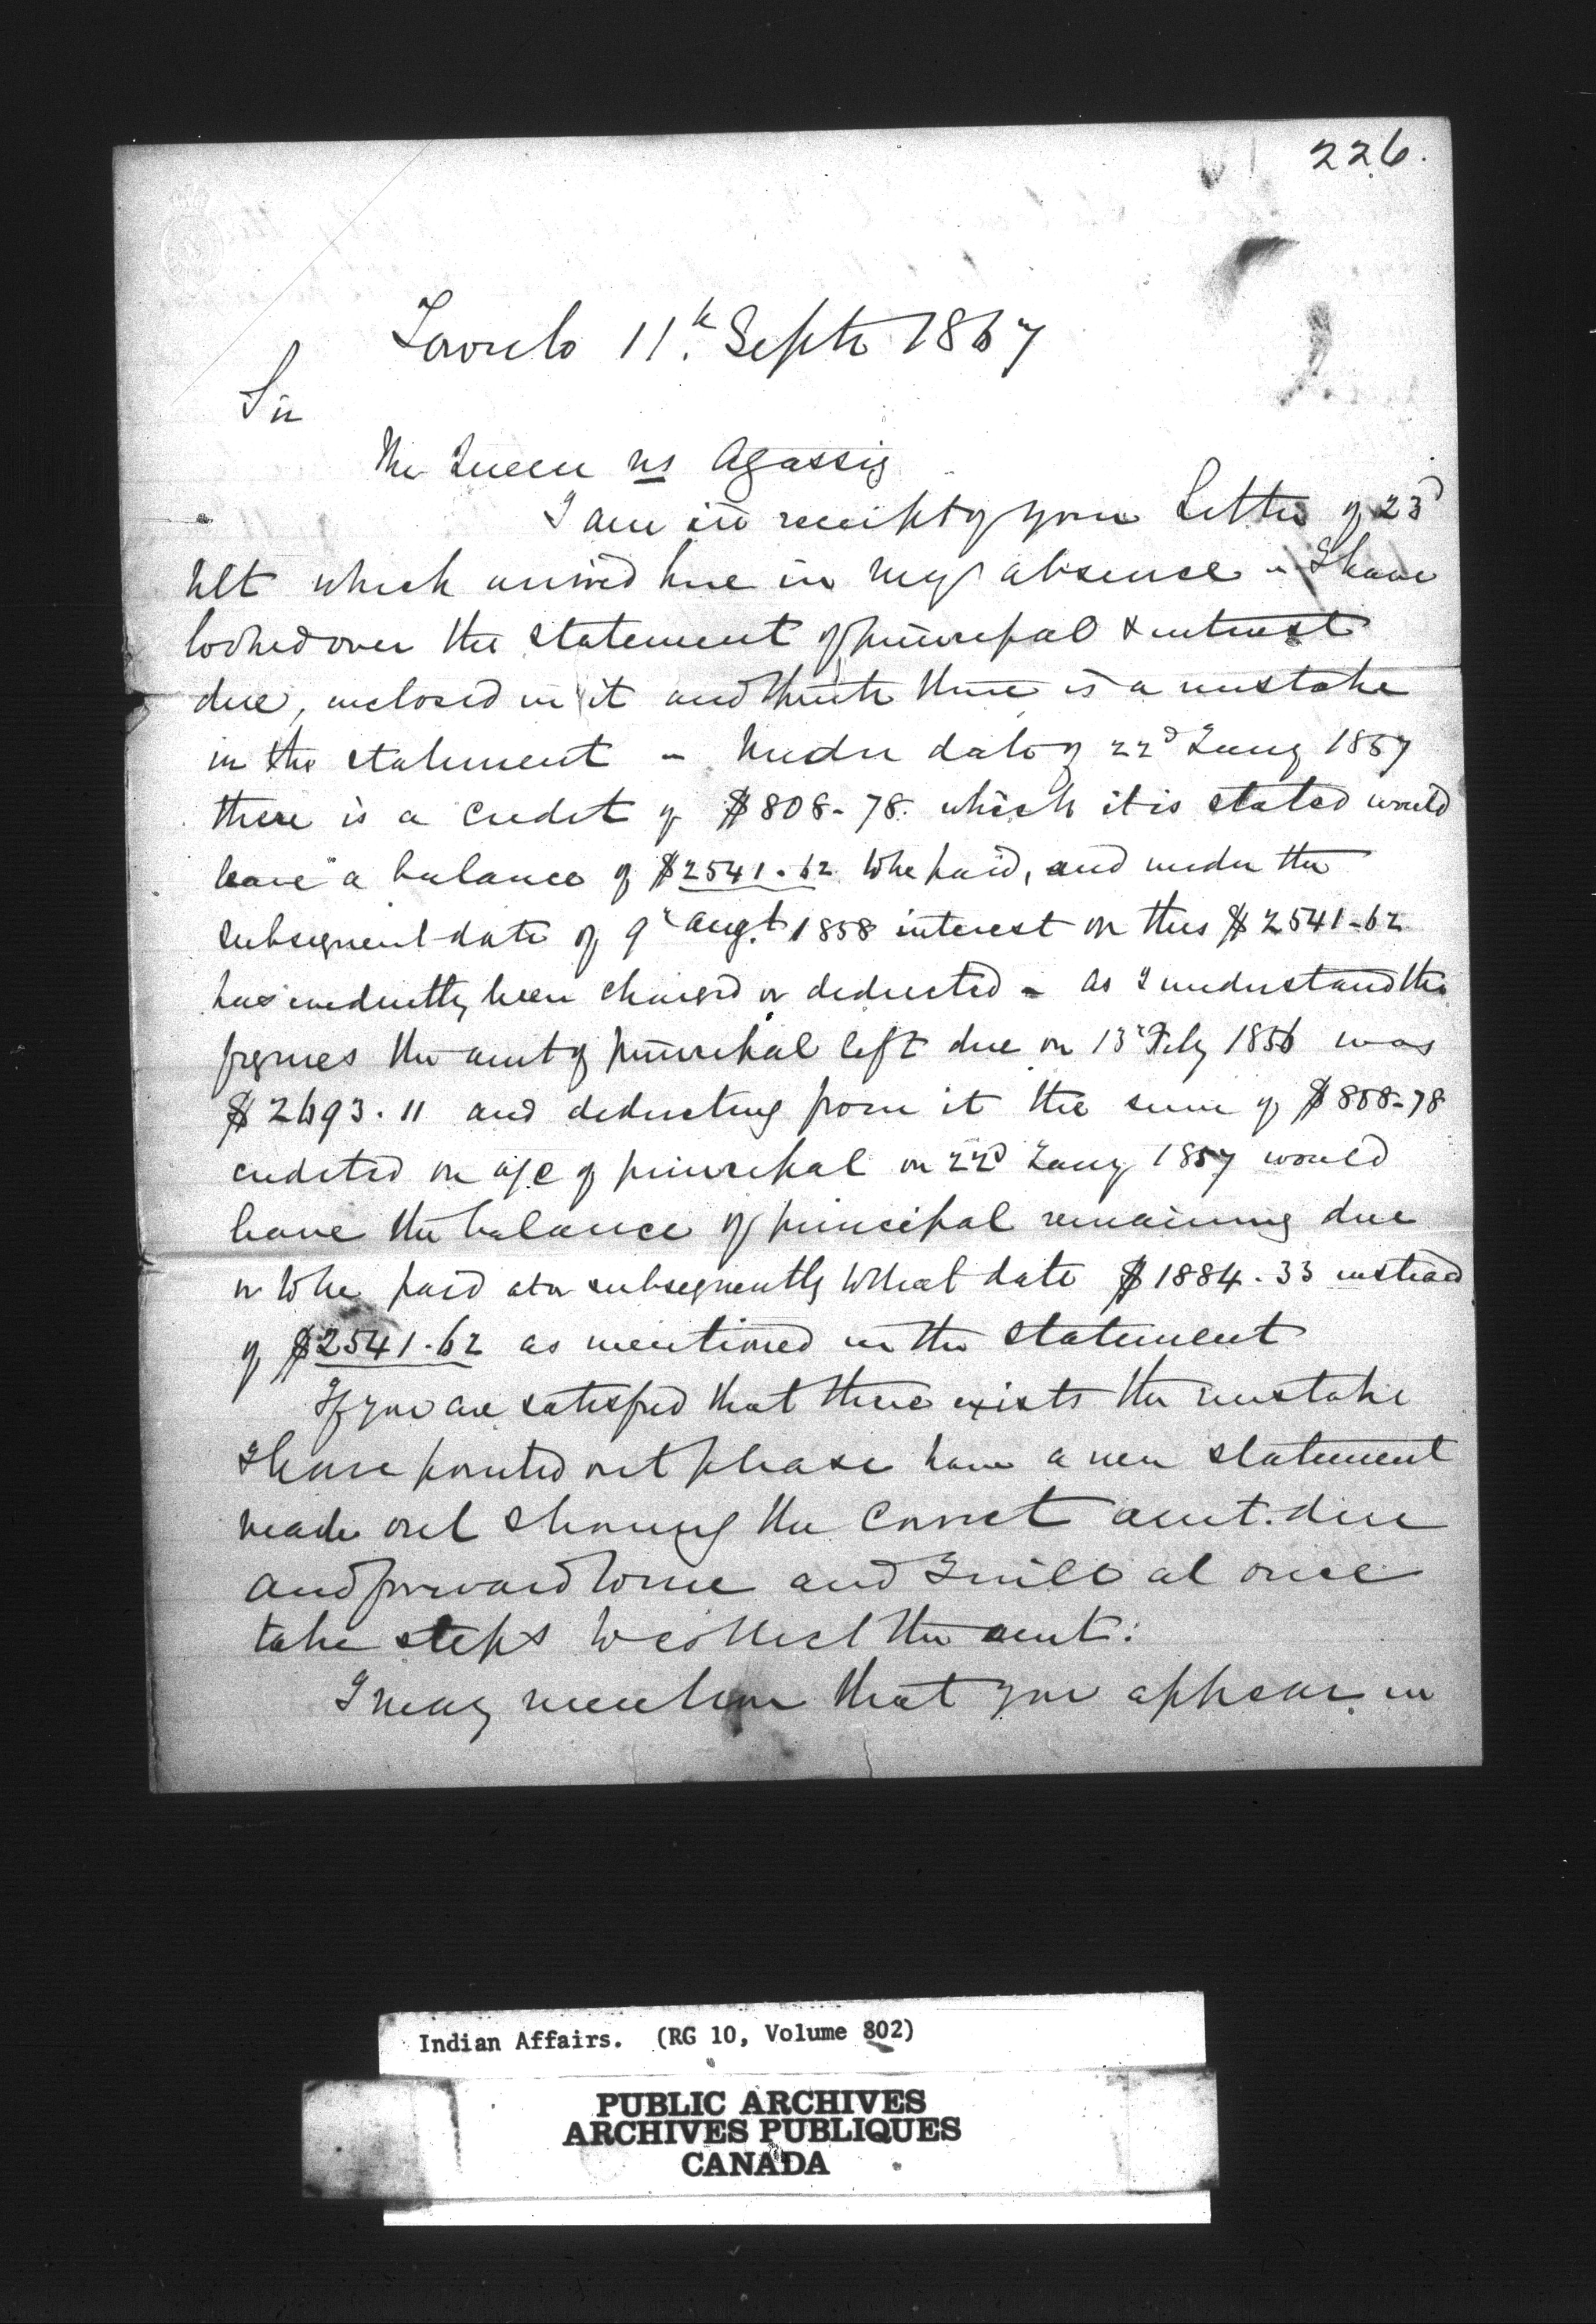 226.
Toronto 11th Septr 1867
Sir
The Queen vs Agassiz
I am in receipt of your Letter of 23d
Ult which arrived here in my absence - I have
looked over the statement of principal & interest
due, inclosed in it and think there is a mistake
in the statement - Under date of 22d Jany 1857
there is a credit of $808-78. which it is stated would
leave a balance of $2541.62 to be paid, and under the
subsequent date of 9th Augt 1858 interest on this $2541-62
has evidently been charged or deducted - As I understand the
figures the amt of principal left due on 13th Feby 1856 was
$2693.11 and deducting from it the sum of $808-78
credited on a/c of principal on 22d Jany 1857 would
leave the balance of principal remaining due
or to be paid at or subsequently to that date $1884.33 instead
of $2541.62 as mentioned in the statement
If you are satisfied that there exists the mistake
I have pointed out please have a new statement
made out showing the correct amt. due
and forward to me and I will at once
take steps to collect the amt.
I may mention that you appear in
Indian Affairs. (RG 10, Volume 802)
PUBLIC ARCHIVES
ARCHIVES PUBLIQUES
CANADA